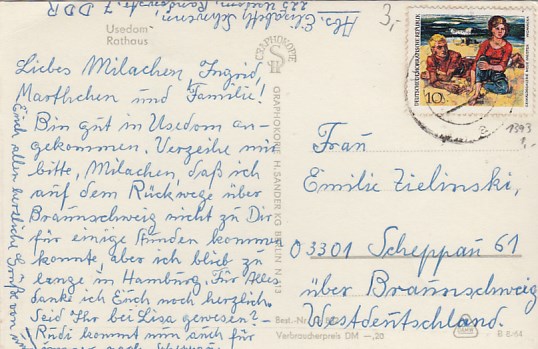 Abs. Elisabeth
222 Usedom, 7 DDR
Usedom
Rathaus
3,-
Liebes Milachen, Ingrid,
Marthchen und Familie!
Bin gut in Usedom an-
gekommen. Verzeihe mir
bitte, Milachen, daß ich
auf dem Rückwege über
Braunschweig nicht zu Dir
für einige Stunden kommen
konnte, aber ich blieb zu
lange in Hamburg. Für Alles
danke ich Euch noch herzlich.
Seid Ihr bei Lisa gewesen? -
Rudi kommt nun auch für
Euch allen herzliche Grüße von
GRAPHOKOPIE
GRAPHOKOPIE H. SANDER KG BERLIN N 113
DEUTSCHE DEMOKRATISCHE REPUBLIK
10
1393
Frau
Emilie Zielinski,
03301 Scheppau 61
über Braunschweig
Westdeutschland.
Best.-Nr.
Verbraucherpreis DM –,20